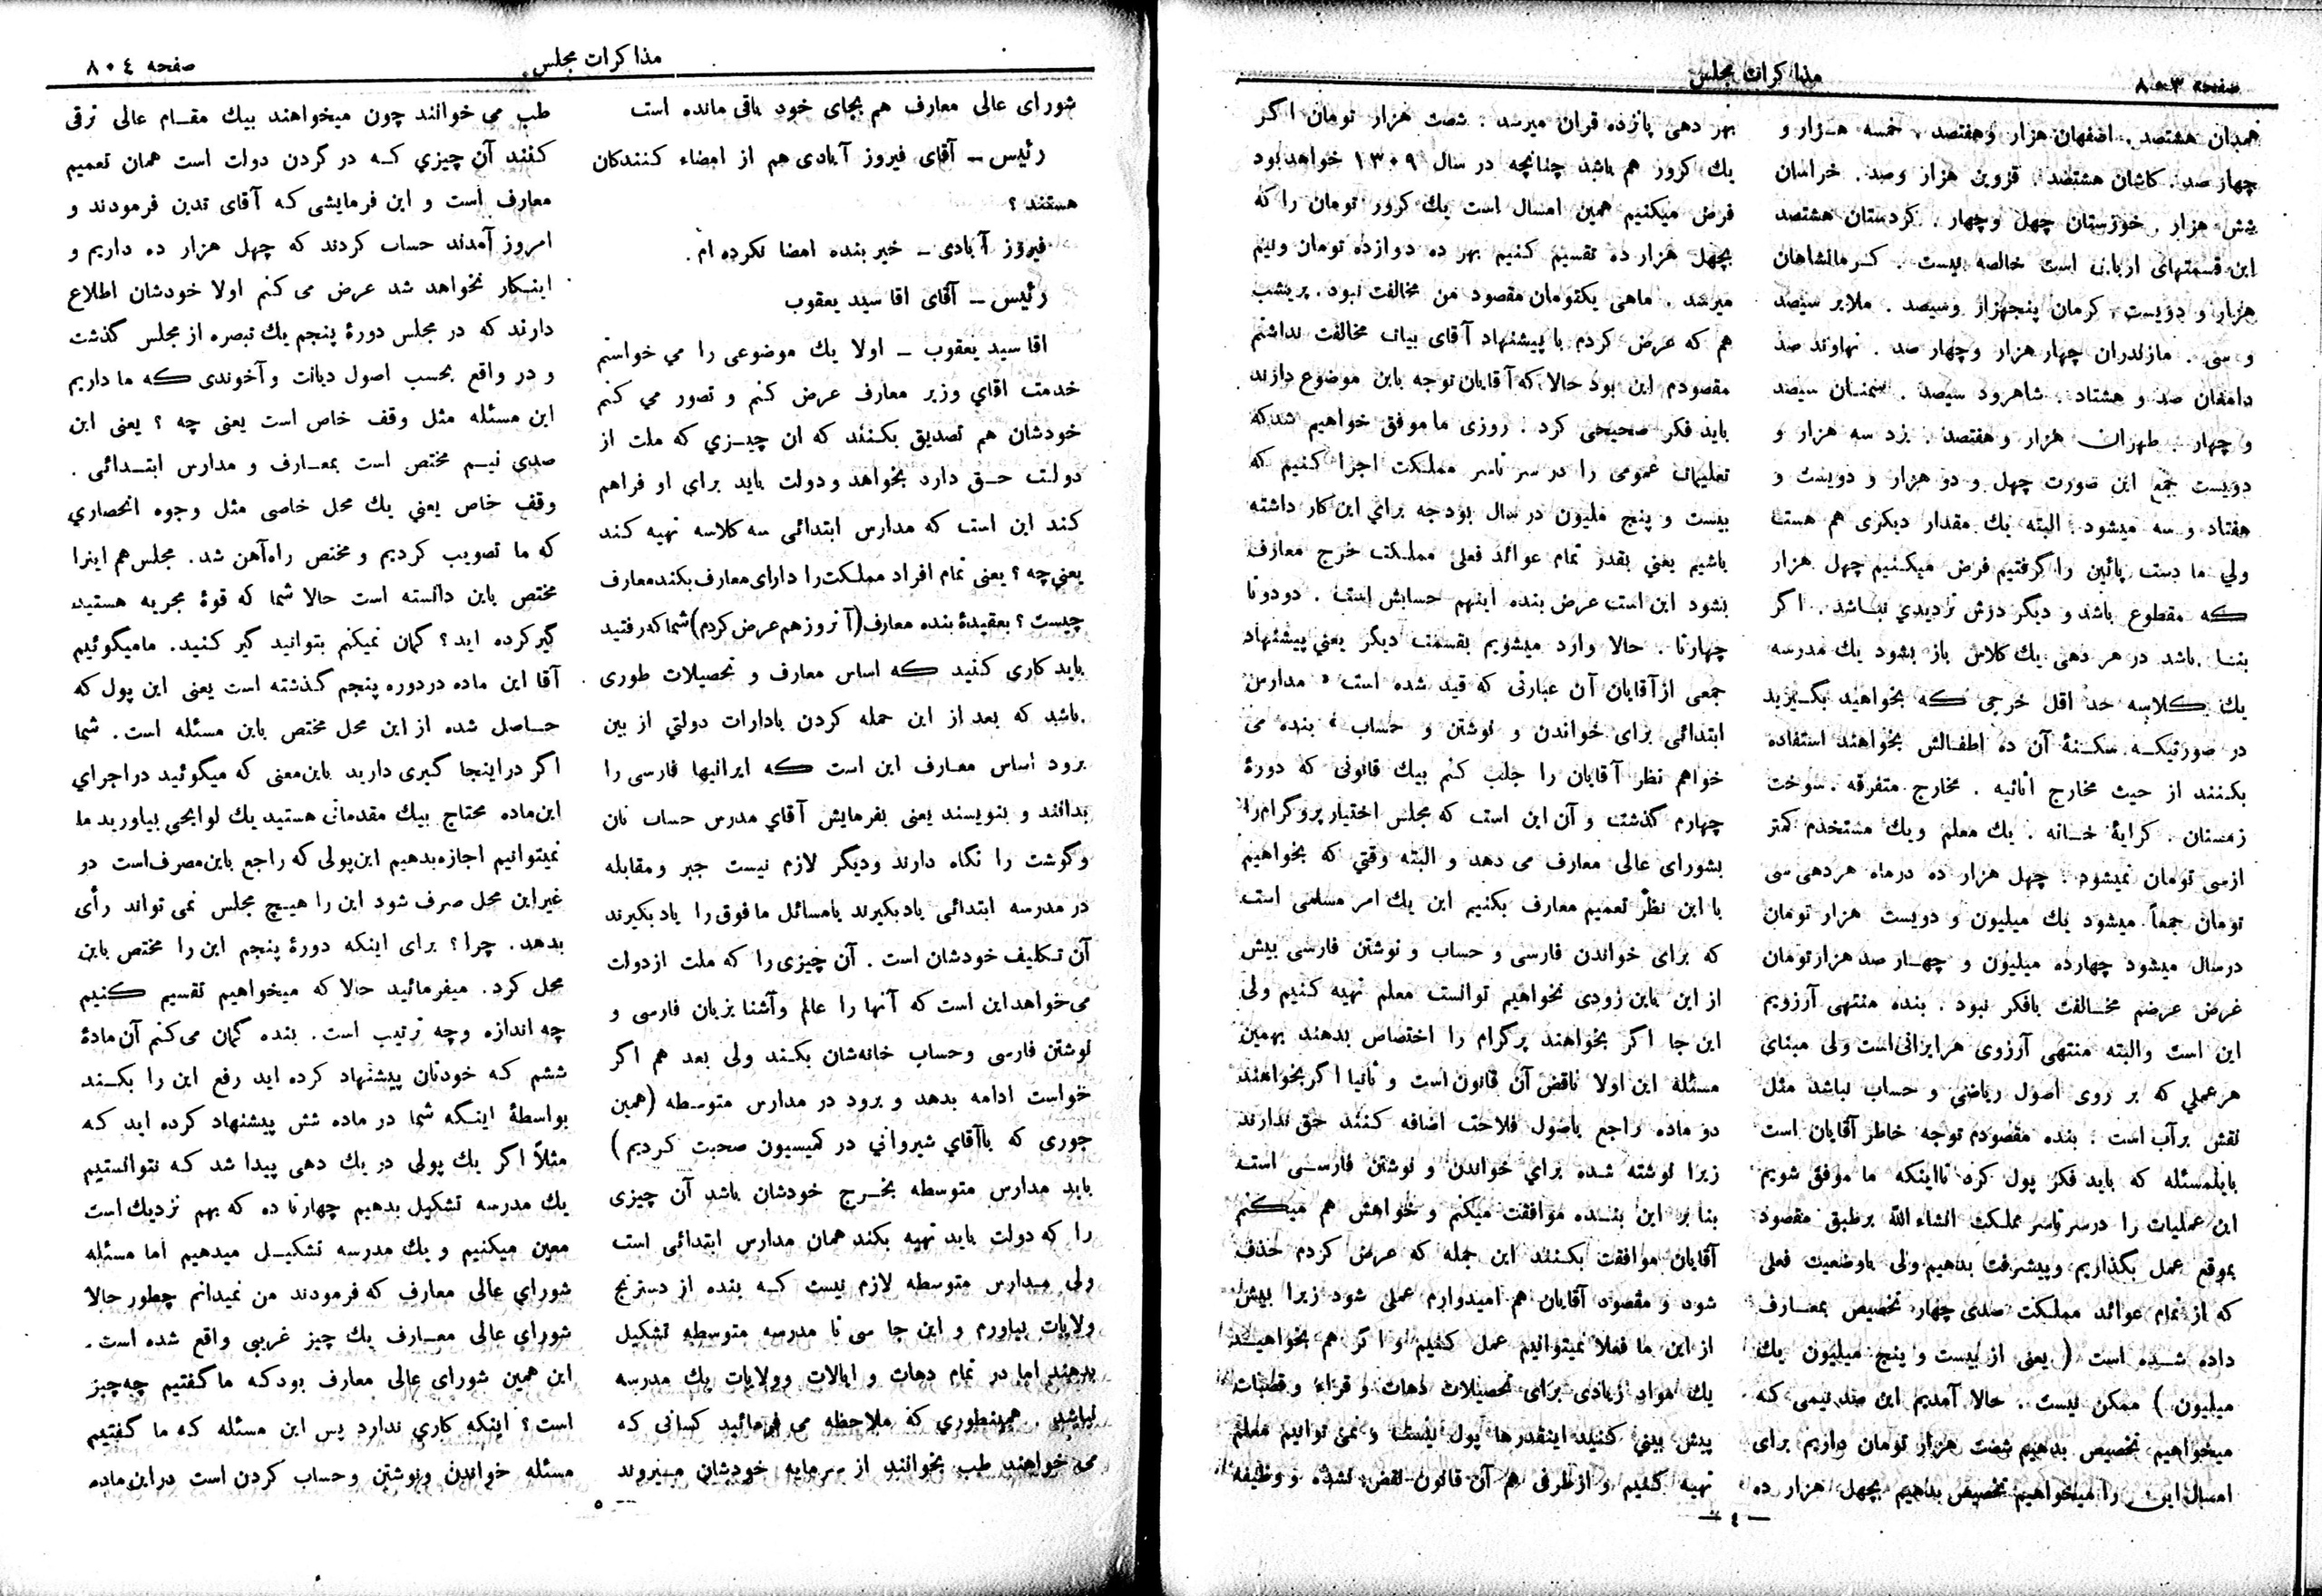 صفحه ۸۰۳
مذاکرات مجلس
همدان هشتصد. اصفهان هزار و هفتصد. خمسه هزار و
چهار صد. کاشان هشتصد. قزوین هزار و صد. خراسان
شش هزار. خوزستان چهل و چهار. کردستان هشتصد
این قسمتهای اربابی است خالصه نیست. کرمانشاهان
هزار و دویست. کرمان پنجهزار و سیصد. ملایر سیصد
و سی. مازندران چهار هزار و چهار صد. نهاوند صد
دامغان صد و هشتاد. شاهرود سیصد. سمنان سیصد
و چهار. طهران هزار و هفتصد. یزد سه هزار و
دویست جمع این صورت چهل و دو هزار و دویست و
هفتاد و سه میشود. البته یك مقدار دیگری هم هست
ولی ما دست پائین را گرفتیم فرض میکنیم چهل هزار
که مقطوع باشد و دیگر درش تردیدی نباشد. اگر
بنا باشد در هر دهی یك کلاس باز بشود یك مدرسه
یك کلاسه حد اقل خرجی که بخواهید بگیرید
در صورتیکه سکنهٔ آن ده اطفالش بخواهند استفاده
بکنند از حیث مخارج اثاثیه. مخارج متفرقه. سوخت
زمستان. کرایهٔ خانه. یك معلم و یك مستخدم کمتر
از سی تومان نمیشود. چهل هزار ده درماه هر دهی سی
تومان جمعاً میشود یك میلیون و دویست هزار تومان
درسال میشود چهارده میلیون و چهار صد هزار تومان
غرض عرضم مخالفت بافکر نبود. بنده منتهی آرزویم
این است والبته منتهی آرزوی هر ایرانی است ولی مبنای
هر عملی که بر روی اصول ریاضی و حساب نباشد مثل
نقش بر آب است. بنده مقصودم توجه خاطر آقایان است
باینمسئله که باید فکر پول کرد تا اینکه ما موفق شویم
این عملیات را درسرتاسر مملکت انشاءالله برطبق مقصود
بموقع عمل بگذاریم و پیشرفت بدهیم ولی باوضعیت فعلی
که از تمام عوائد مملکت صدی چهار تخصیص بمعارف
داده شده است (یعنی از بیست و پنج میلیون یك
میلیون) ممکن نیست. حالا آمدیم این صد نیمی که
میخواهیم تخصیص بدهیم شصت هزار تومان داریم برای
امسال این را میخواهیم تخصیص بدهیم بچهل هزار ده
بهر دهی پانزده قران میرسد. شصت هزار تومان اگر
یك کرور هم باشد چنانچه در سال ۱۳۰۹ خواهد بود
فرض میکنیم همین امسال است یك کرور تومان را که
بچهل هزار ده تقسیم کنیم بهر ده دوازده تومان ونیم
میرسد. ماهی یکتومان مقصود من مخالفت نبود. پریشب
هم که عرض کردم با پیشنهاد آقای بیات مخالفت نداشتم
مقصودم این بود حالا که آقایان توجه باین موضوع دارند
باید فکر صحیحی کرد. روزی ما موفق خواهیم شد که
تعلیمات عمومی را در سر تاسر مملکت اجرا کنیم که
بیست و پنج ملیون در سال بودجه برای این کار داشته
باشیم یعنی بقدر تمام عوائد فعلی مملکت خرج معارف
بشود این است عرض بنده اینهم حسابش است. دودوتا
چهارتا. حالا وارد میشویم بقسمت دیگر یعنی پیشنهاد
جمعی از آقایان آن عبارتی که قید شده است «مدارس
ابتدائی برای خواندن و نوشتن و حساب» بنده می
خواهم نظر آقایان را جلب کنم بیك قانونی که دورهٔ
چهارم گذشت و آن این است که مجلس اختیار پروگرام را
بشورای عالی معارف می دهد و البته وقتی که بخواهیم
با این نظر تعمیم معارف بکنیم این یك امر مسلمی است
که برای خواندن فارسی و حساب و نوشتن فارسی بیش
از این باین زودی نخواهیم توانست معلم تهیه کنیم ولی
این جا اگر بخواهند پرگرام را اختصاص بدهند بهمین
مسئله این اولا ناقض آن قانون است و ثانیا اگر بخواهند
دو ماده راجع باصول فلاحت اضافه کنند حق ندارند
زیرا نوشته شده برای خواندن و نوشتن فارسی است
بنا بر این بنده موافقت میکنم و خواهش هم میکنم
آقایان موافقت بکنند این جمله که عرض کردم حذف
شود و مقصود آقایان هم امیدوارم عملی شود زیرا بیش
از این ما فعلا نمیتوانیم عمل کنیم و اگر هم بخواهیند
یك مواد زیادی برای تحصیلات دهات و قراء و قصبات
پیش بینی کنید اینقدرها پول نیست و نمی توانیم معلم
تهیه کنیم و از طرفی هم آن قانون نقض نشده و وظیفه
— ٤ —
صفحه ۸۰٤
مذاکرات مجلس
شورای عالی معارف هم بجای خود باقی مانده است
رئیس ــ آقای فیروز آبادی هم از امضاء کنندکان
هستند؟
فیروز آبادی ــ خیر بنده امضا نکرده ام.
رئیس ــ آقای اقا سید یعقوب
اقا سید یعقوب ــ اولا یك موضوعی را می خواستم
خدمت اقای وزیر معارف عرض کنم و تصور می کنم
خودشان هم تصدیق بکنند که ان چیزي که ملت از
دولت حق دارد بخواهد و دولت باید برای او فراهم
کند این است که مدارس ابتدائی سه کلاسه تهیه کند
یعنی چه؟ یعنی تمام افراد مملکت را دارای معارف بکند معارف
چیست؟ بعقیدهٔ بنده معارف (آنروزهم عرض کردم) شما که رفتید
باید کاری کنید که اساس معارف و تحصیلات طوری
باشد که بعد از این حمله کردن بادارات دولتی از بین
برود اساس معارف این است که ایرانیها فارسی را
بدانند و بنویسند یعنی بفرمایش آقای مدرس حساب نان
وگوشت را نگاه دارند ودیگر لازم نیست جبر و مقابله
در مدرسه ابتدائی یاد بگیرند یامسائل مافوق را یاد بگیرند
آن تکلیف خودشان است. آن چیزی را که ملت ازدولت
می خواهد این است که آنها را عالم وآشنا بزبان فارسی و
نوشتن فارسی وحساب خانه‌شان بکند ولی بعد هم اگر
خواست ادامه بدهد و برود در مدارس متوسطه (همین
جوری که باآقای شیروانی در کمیسیون صحبت کردیم)
باید مدارس متوسطه بخرج خودشان باشد آن چیزی
را که دولت باید تهیه بکند همان مدارس ابتدائی است
ولی مدارس متوسطه لازم نیست که بنده از دسترنج
ولایات بیاورم و این جا سی تا مدرسه متوسطه تشکیل
بدهند اما در تمام دهات و ایالات وولایات یك مدرسه
نباشد. همینطوري که ملاحظه می فرمائید کسانی که
می خواهند طب بخوانند از سرمایه خودشان میروند
طب می خوانند چون میخواهند بیك مقام عالی ترقی
کنند آن چیزي که در گردن دولت است همان تعمیم
معارف است و این فرمایشی که آقای تدین فرمودند و
امروز آمدند حساب کردند که چهل هزار ده داریم و
اینکار نخواهد شد عرض می کنم اولا خودشان اطلاع
دارند که در مجلس دورهٔ پنجم یك تبصره از مجلس گذشت
و در واقع بحسب اصول دیانت و آخوندی که ما داریم
این مسئله مثل وقف خاص است یعنی چه؟ یعنی این
صدی نیم مختص است بمعارف و مدارس ابتدائی.
وقف خاص یعنی یك محل خاصی مثل وجوه انحصاري
که ما تصویب کردیم و مختص راه‌آهن شد. مجلس هم اینرا
مختص باین دانسته است حالا شما که قوهٔ مجریه هستید
گیر کرده اید؟ گمان نمیکنم بتوانید گیر کنید. مامیگوئیم
آقا این ماده دردوره پنجم گذشته است یعنی این پول که
حاصل شده از این محل مختص باین مسئله است. شما
اگر دراینجا گیری دارید باین معنی که میگوئید دراجرای
این ماده محتاج بیك مقدماتی هستید یك لوایحی بیاورید ما
نمیتوانیم اجازه بدهیم این پولی که راجع باین مصرف است دو
غیر این محل صرف شود این را هیچ مجلس نمی تواند رأی
بدهد. چرا؟ برای اینکه دورهٔ پنجم این را مختص باین
محل کرد. میفرمائید حالا که میخواهیم تقسیم کنیم
چه اندازه وچه ترتیب است. بنده گمان می کنم آن مادهٔ
ششم که خودتان پیشنهاد کرده اید رفع این را بکند
بواسطهٔ اینکه شما در ماده شش پیشنهاد کرده اید که
مثلاً اگر یك پولی در یك دهی پیدا شد که نتوانستیم
یك مدرسه تشکیل بدهیم چهارتا ده که بهم نزدیك است
معین میکنیم و یك مدرسه تشکیل میدهیم اما مسئله
شورای عالی معارف که فرمودند من نمیدانم چطور حالا
شورای عالی معارف یك چیز غریبی واقع شده است.
این همین شورای عالی معارف بود که ما گفتیم چه چیز
است؟ اینکه کاری ندارد پس این مسئله که ما گفتیم
مسئله خواندن ونوشتن و حساب کردن است در این ماده
— ٥ —